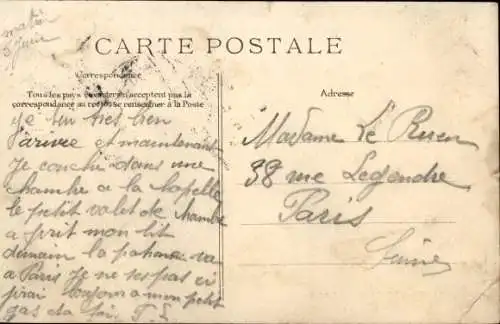 matin
5 Juin
CARTE POSTALE
Correspondance
Tous les pays étrangers n'acceptent pas la
correspondance au recto, se renseigner à la Poste
Adresse
je sui tres bien
arivee et maintenant
je couche dans une
chambre a la chapelle
le petit valet de chambre
a prit mon lit
demain la va
a Paris Je ne ses pas ci
jirai toujour a mon petit
gas
Madame Le
38 rue Legendre
Paris
Seine